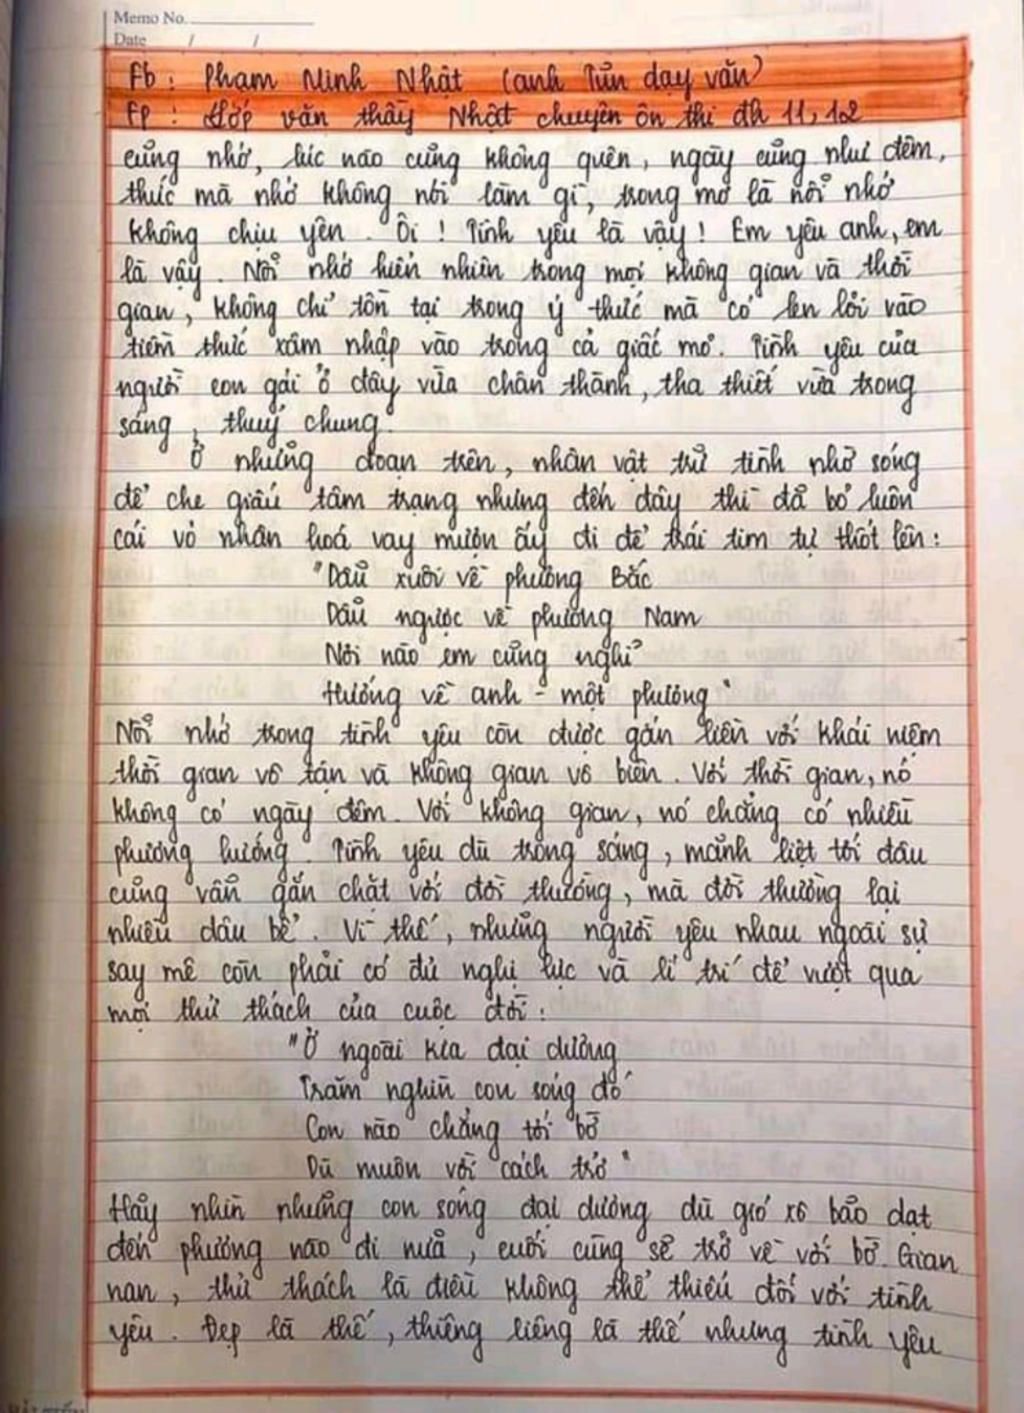 Memo No.
Date / /
Fb : Phạm Minh Nhật (anh Tủn dạy văn)
Fp : Lớp văn thầy Nhật chuyên ôn thi đh 11, 12
cũng nhớ, lúc nào cũng không quên, ngày cũng như đêm,
thức mà nhớ không nói làm gì, trong mơ là nỗi nhớ
không chịu yên. Ôi ! Tình yêu là vậy! Em yêu anh, em
là vậy. Nỗi nhớ hiển nhiên trong mọi không gian và thời
gian, không chỉ tồn tại trong ý thức mà có len lỏi vào
tiềm thức xâm nhập vào trong cả giấc mơ. Tình yêu của
người con gái ở đây vừa chân thành, tha thiết vừa trong
sáng, thuỷ chung.
Ở những đoạn trên, nhân vật trữ tình nhờ sóng
để che giấu tâm trạng nhưng đến đây thì đã bỏ luôn
cái vỏ nhân hoá vay mượn ấy đi để trái tim tự thốt lên:
"Dẫu xuôi về phương Bắc
Dẫu ngược về phương Nam
Nơi nào em cũng nghĩ
Hướng về anh - một phương"
Nỗi nhớ trong tình yêu còn được gắn liền với khái niệm
thời gian vô tận và không gian vô biên. Với thời gian, nó
không có ngày đêm. Với không gian, nó chẳng có nhiều
phương hướng. Tình yêu dù trong sáng, mãnh liệt tới đâu
cũng vẫn gắn chặt với đời thường, mà đời thường lại
nhiều dâu bể. Vì thế, những người yêu nhau ngoài sự
say mê còn phải có đủ nghị lực và lí trí để vượt qua
mọi thử thách của cuộc đời:
"Ở ngoài kia đại dương
Trăm nghìn con sóng đó
Con nào chẳng tới bờ
Dù muôn vời cách trở"
Hãy nhìn những con sóng đại dương dù gió xô bão dạt
đến phương nào đi nữa, cuối cùng sẽ trở về với bờ. Gian
nan, thử thách là điều không thể thiếu đối với tình
yêu. Đẹp là thế, thiêng liêng là thế nhưng tình yêu